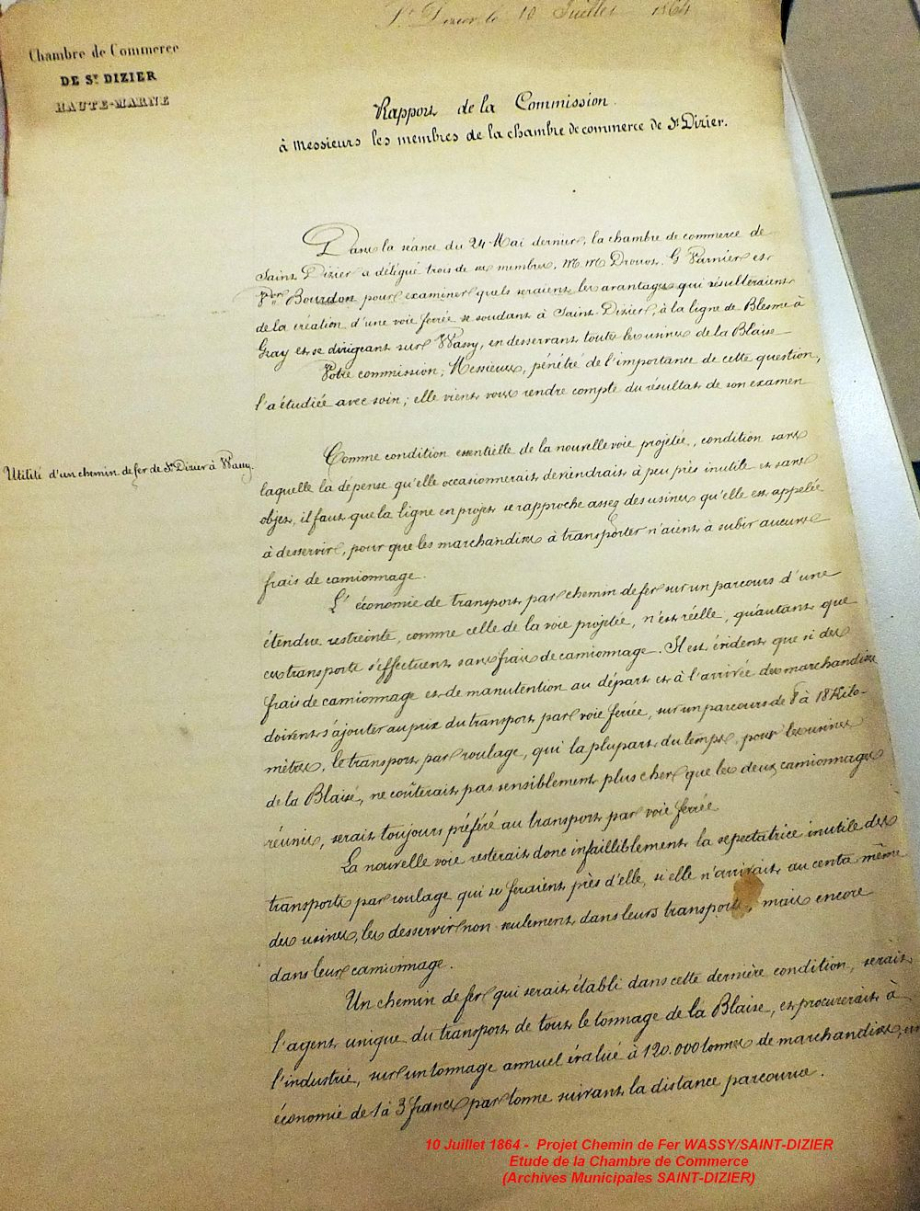 St Dizier le 10 Juillet 1864
Chambre de Commerce
DE ST. DIZIER
HAUTE-MARNE
Rapport de la Commission
à Messieurs les membres de la chambre de commerce de St Dizier.
Dans la séance du 24 Mai dernier, la chambre de commerce de
Saint Dizier a délégué trois de ses membres, M.M Drouot. G Varnier et
Vor Bourdon pour examiner quels seraient les avantages qui résulteraient
de la création d'une voie ferrée se soudant à Saint-Dizier, à la ligne de Blesme à
Gray et se dirigeant sur Wassy, en desserrant toute les usines de la Blaise
Votre commission, Messieurs, pénétré de l'importance de cette question,
l'a étudiée avec soin; elle vient vous rendre compte du résultat de son examen
Utilité d'un chemin de fer de St Dizier à Wassy.
Comme condition essentielle de la nouvelle voie projetée, condition sans
laquelle la dépense qu'elle occasionnerait deviendrait à peu près inutile et sans
objet, il faut que la ligne en projet se rapproche assez des usines qu'elle est appelée
à desservir, pour que les marchandises à transporter n'aient à subir aucuns
frais de camionnage.
L'économie de transport par chemin de fer sur un parcours d'une
étendue restreinte, comme celle de la voie projetée, n'est réelle, qu'autant que
ces transports s'effectuent sans frais de camionnage. Il est évident que si des
frais de camionnage et de manutention au départ et à l'arrivée des marchandises
doivent s'ajouter au prix du transport par voie ferrée, sur un parcours de 8 à 18 Kilo-
mètres, le transport par roulage, qui la plupart du temps, pour les usines
de la Blaise, ne coûterait pas sensiblement plus cher que les deux camionnages
réunis, serait toujours préféré au transport par voie ferrée
La nouvelle voie resterait donc infailliblement la sepectatrice inutile des
transports par roulage qui se feraient près d'elle, si elle n'arrivait au centre même
des usines, les desservir non seulement dans leurs transports, mais encore
dans leur camionnage.
Un chemin de fer qui serait établi dans cette dernière condition, serait
l'agent unique du transport de tout le tonnage de la Blaise, et procurerait à
l'industrie, sur un tonnage annuel évalué à 120.000 tonnes de marchandises, un
économie de 1 à 3 francs par tonne suivant la distance parcourue.
10 Juillet 1864 - Projet Chemin de Fer WASSY/SAINT-DIZIER
Etude de la Chambre de Commerce
(Archives Municipales SAINT-DIZIER)